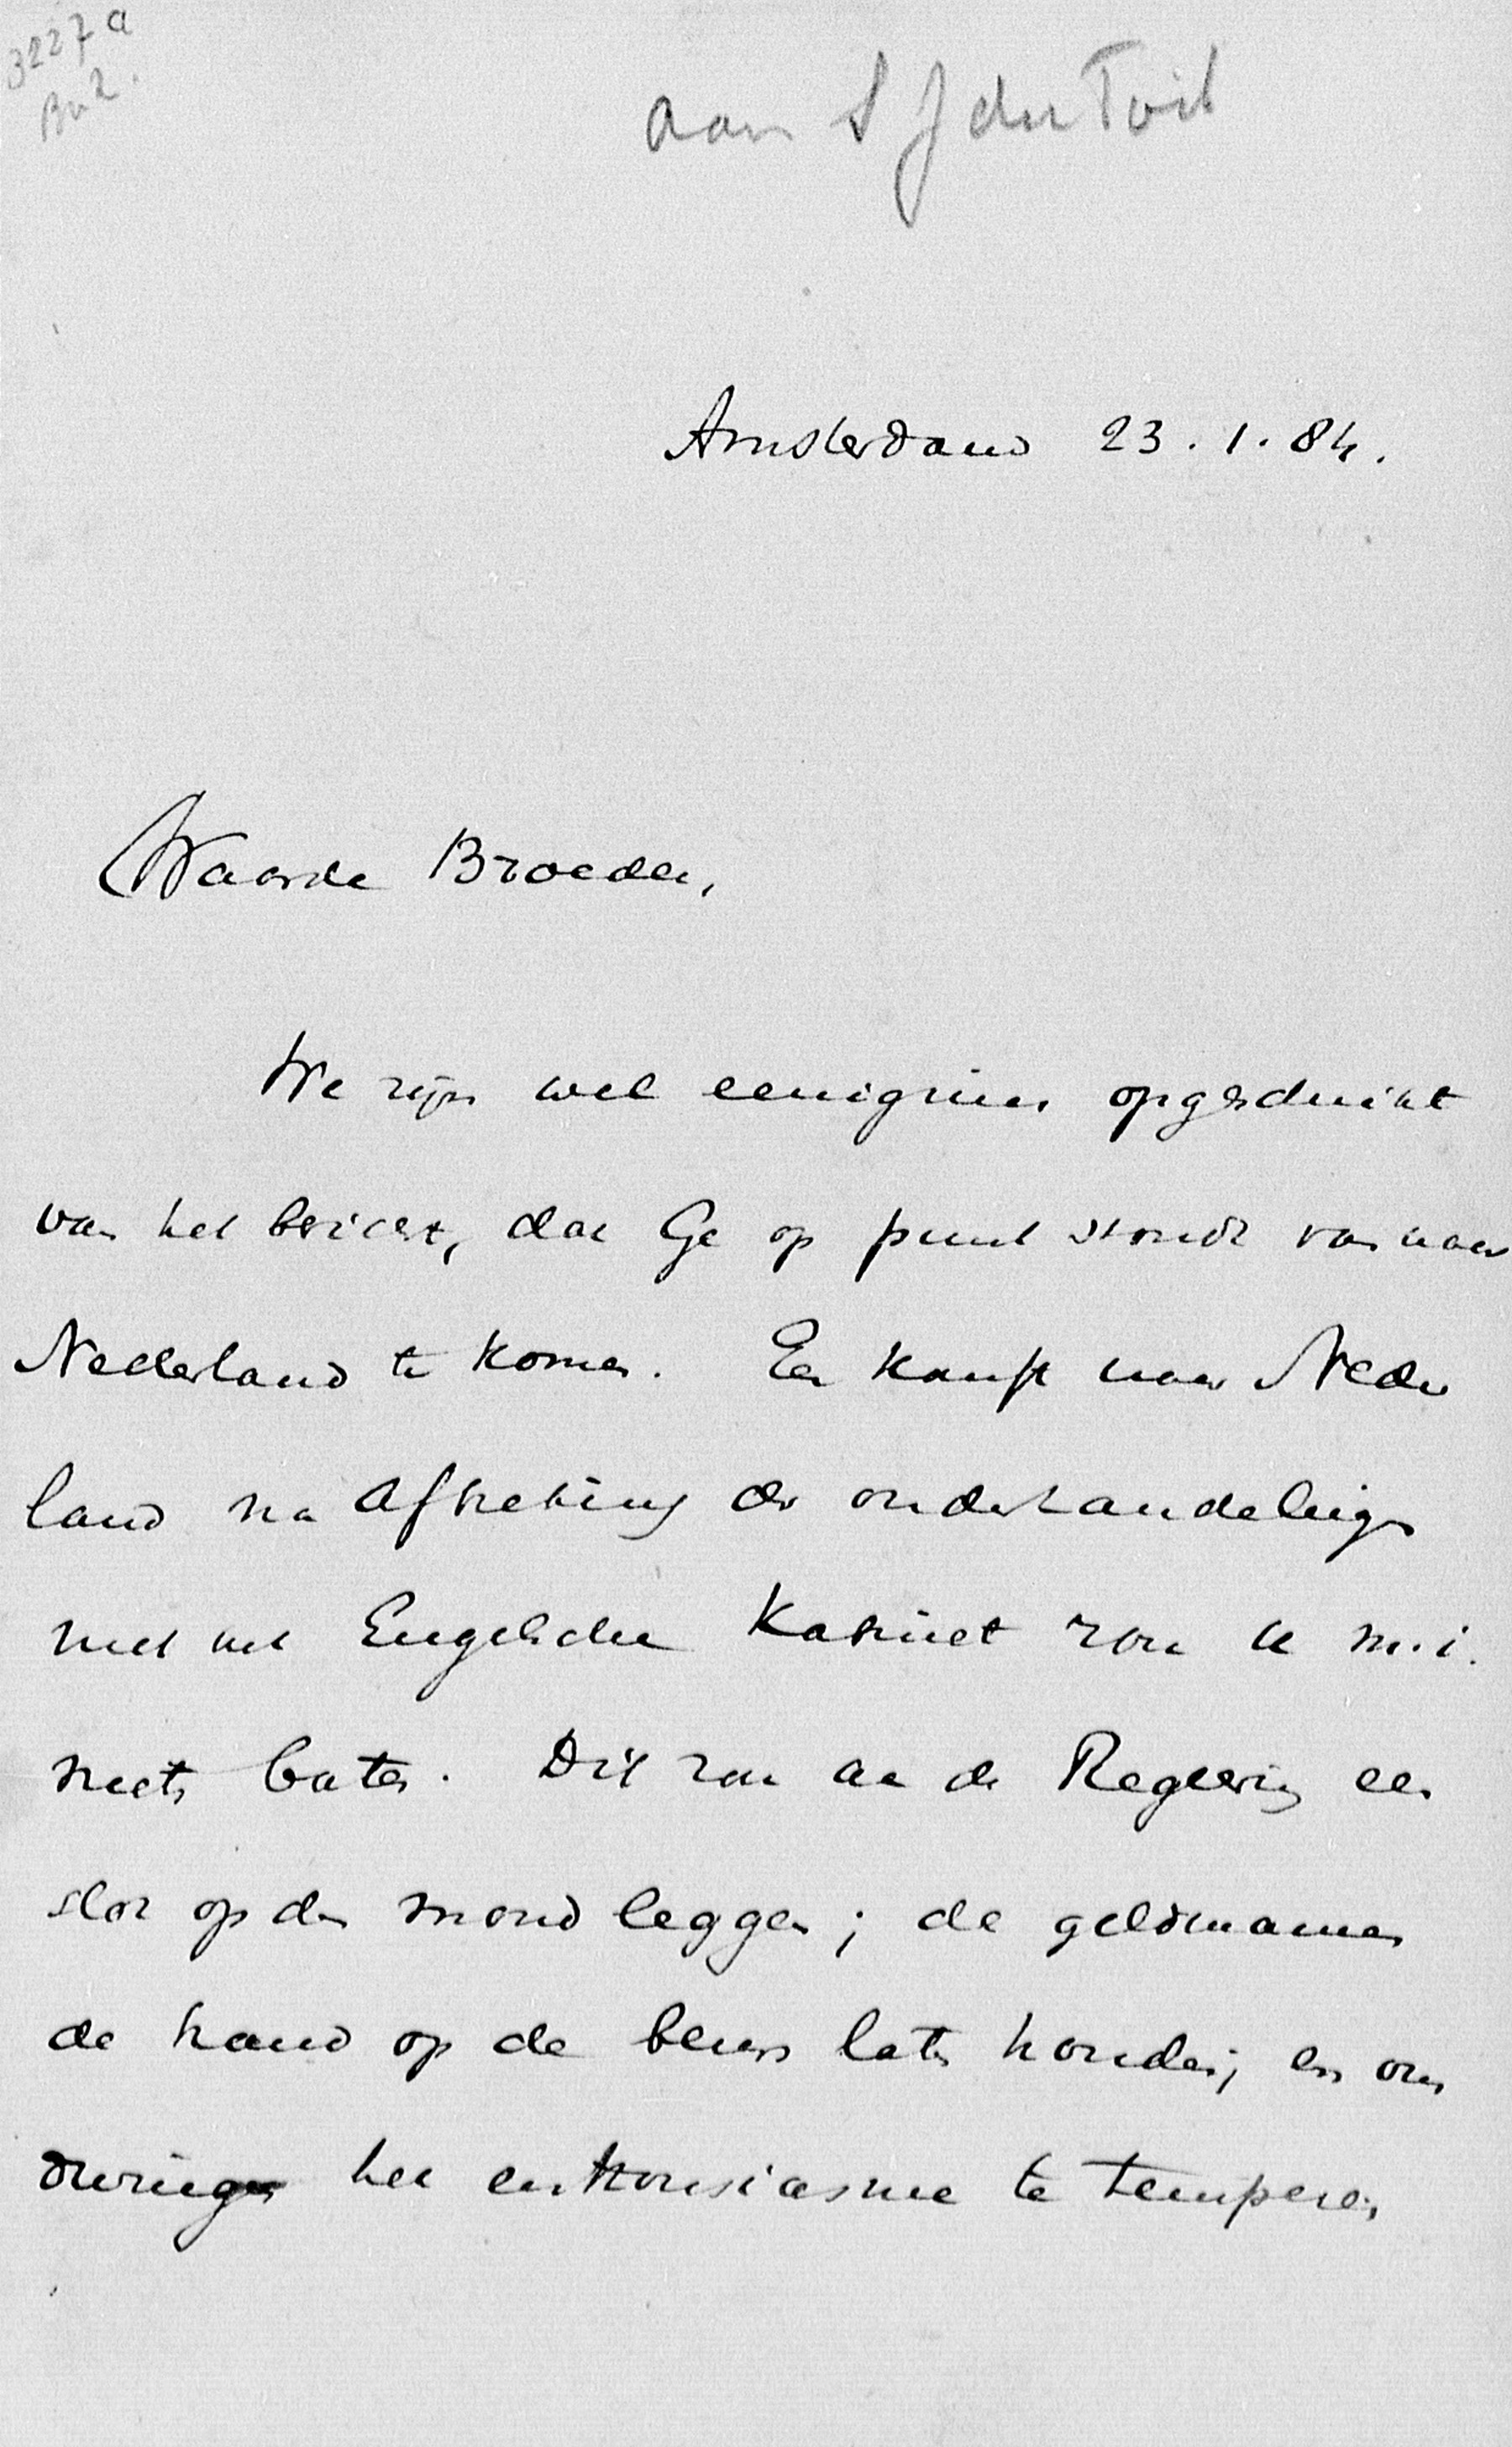 3227a
Br 2.
aan S J du Toit
Amsterdam 23.1.84.
Waarde Broeder,
We zijn wel eenigzins opgeschrikt
van het bericht, dat Ge op punt stondt van naar
Nederland te komen. Een komst naar Neder
land na afbreking der onderhandelingen
met het Engelsche Kabinet zou U m.i.
niets baten. Dit zou aan de Regeering een
slot op den mond leggen; de geldmannen
de hand op de beurs laten houden; en ons
dwingen het enthousiasme te temperen,